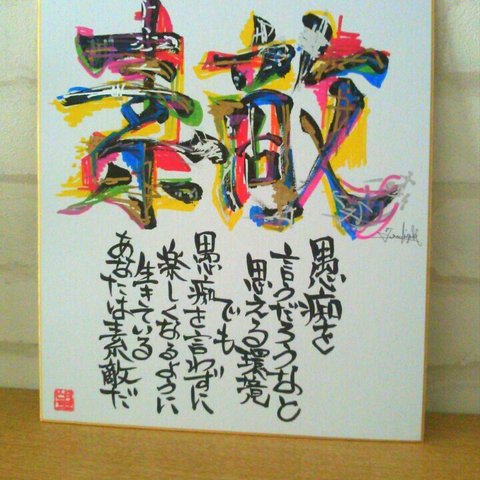 素敵
愚痴を
言うだろうなと
思える環境
でも
愚痴を言わずに
楽しくなるように
生きている
あなたは素敵だ